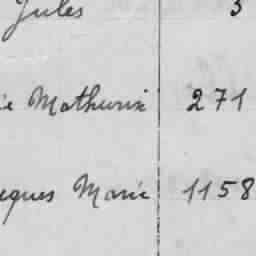 Jules 3
ie Mathurin 271
cques Marie 1158